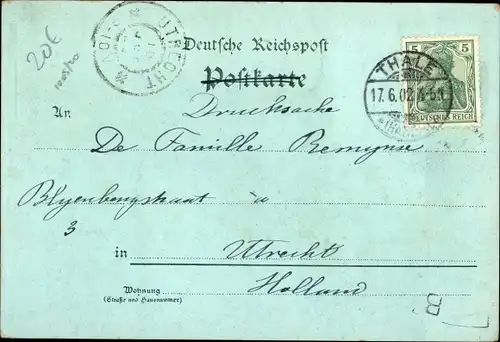 20€
UTRECHT
Deutsche Reichspost
Postkarte
5 5
THALE
17.6.02. 4-5N
DEUTSCHES REICH
Drucksache
An
De Famille Remijnse
Blijenburgstraat a
3
in Utrecht
Holland
Wohnung
(Straße und Hausnummer)
B